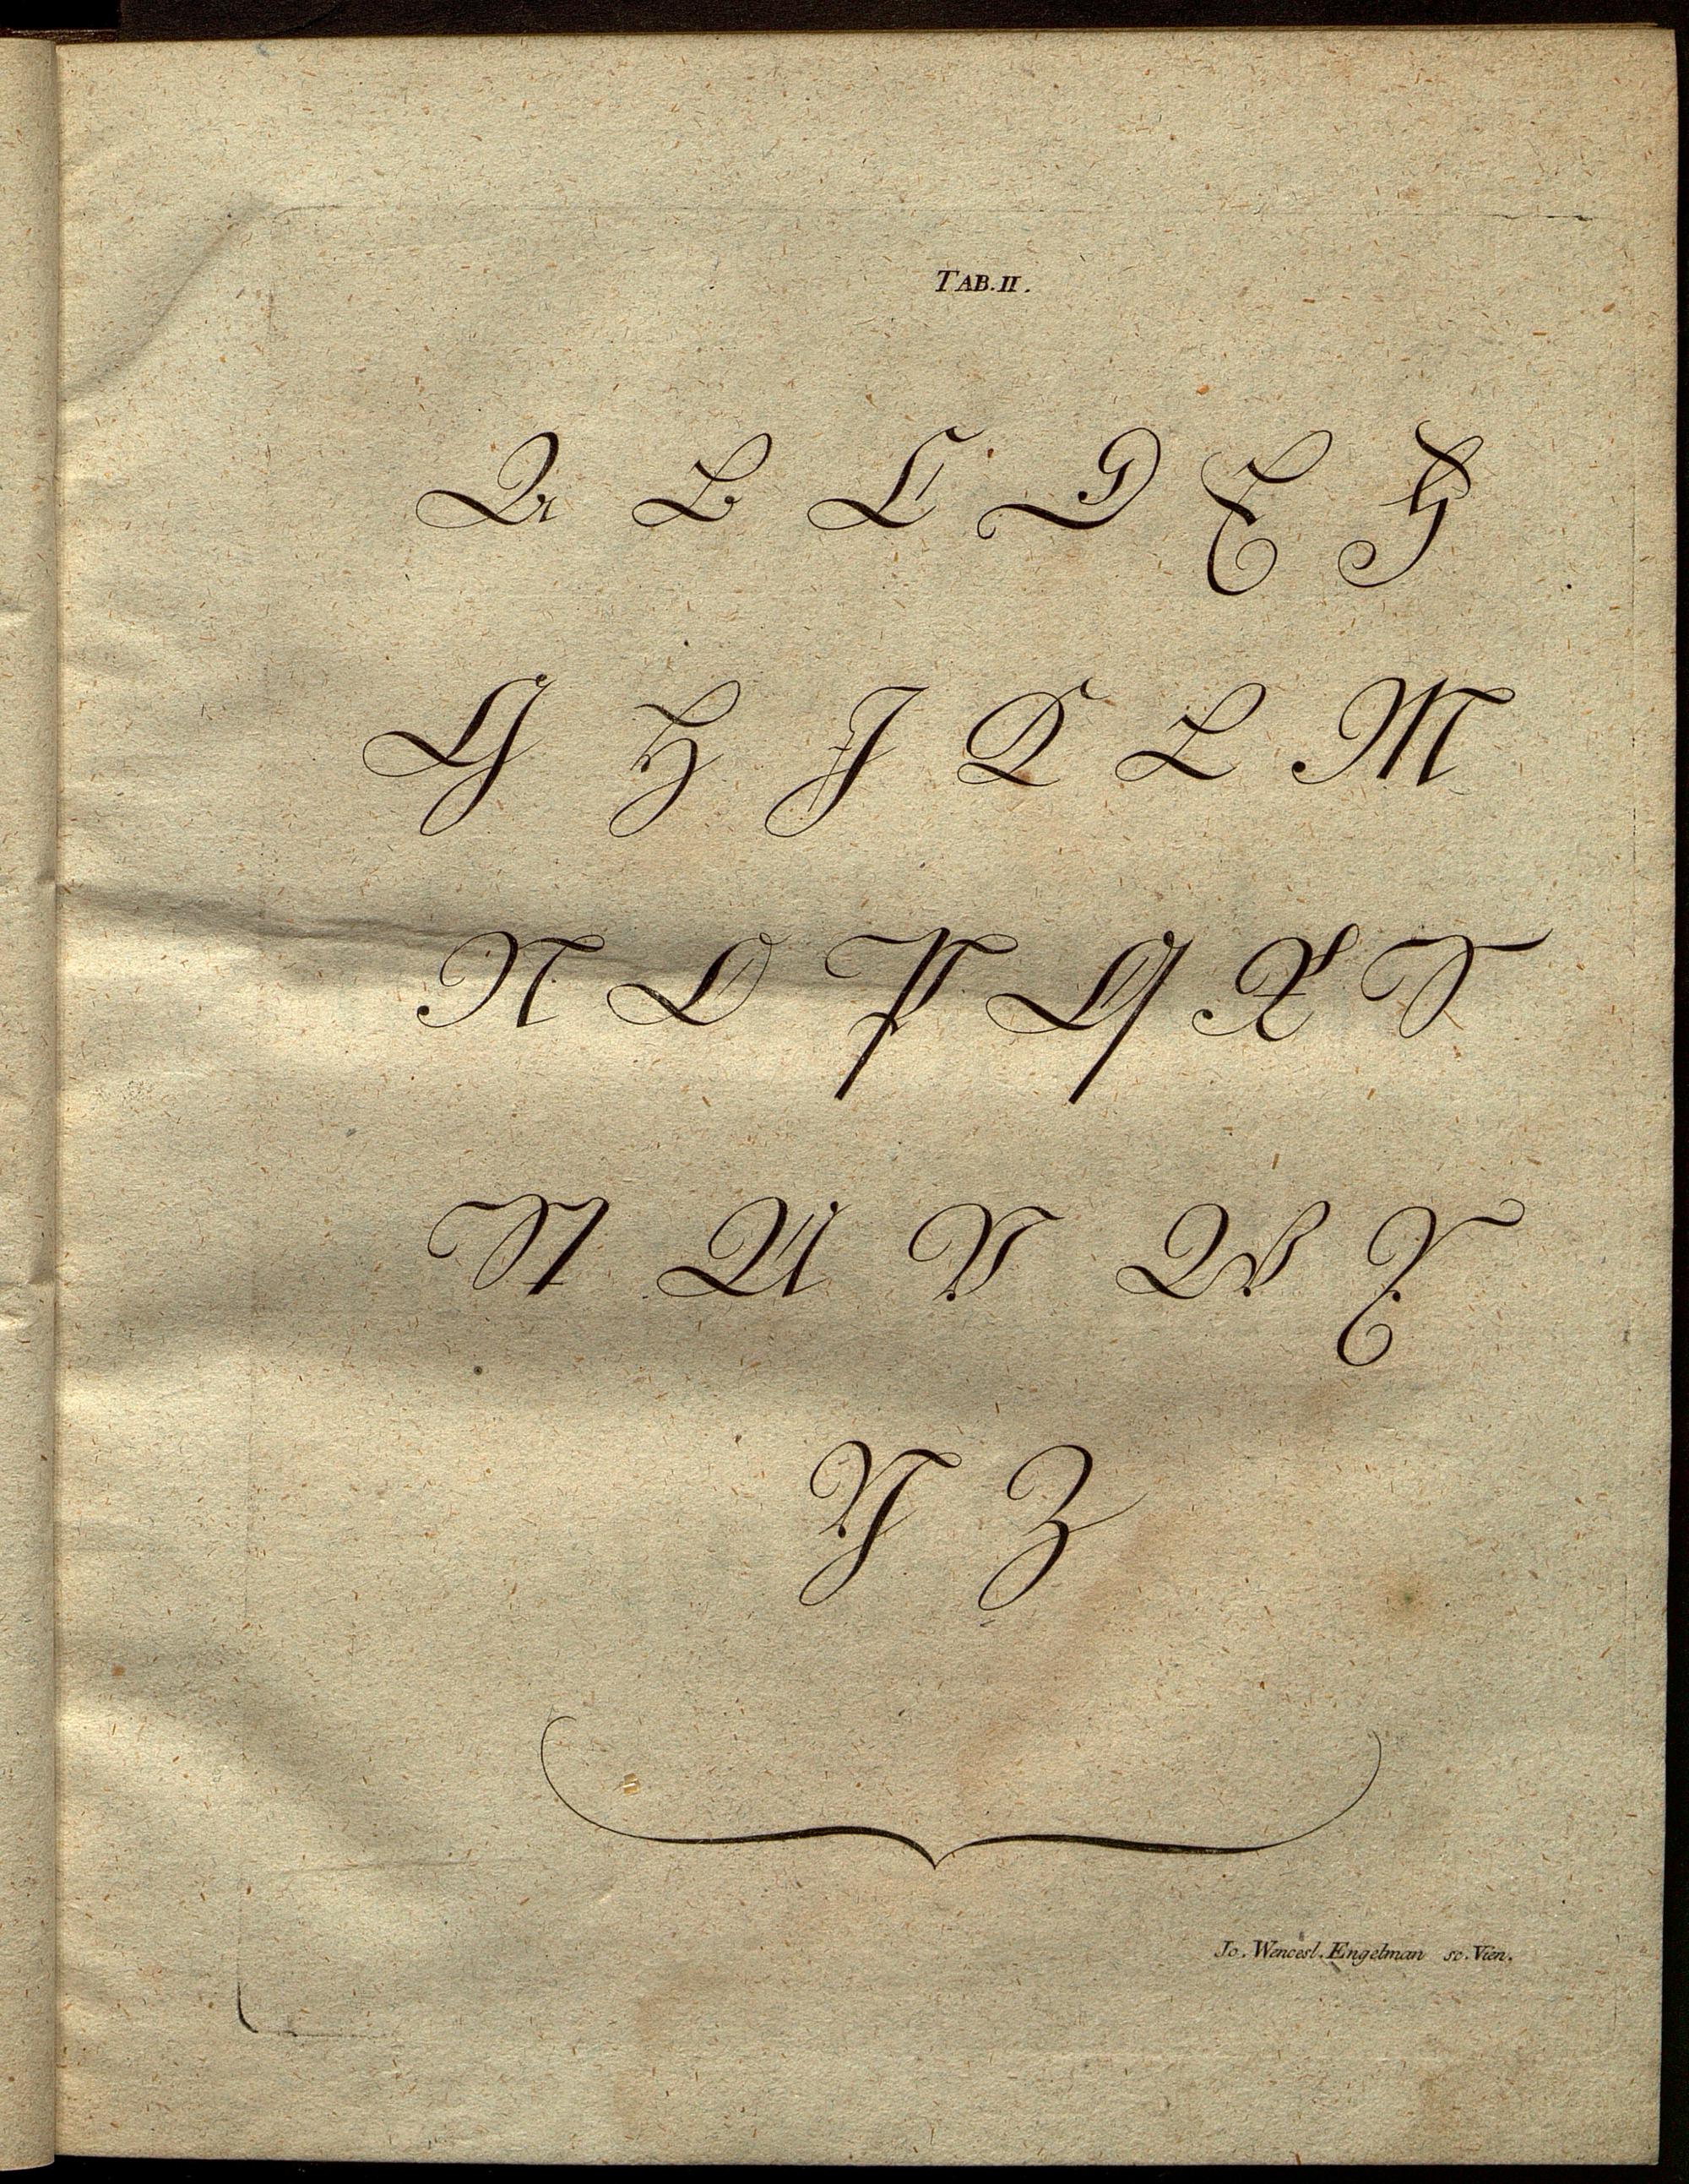 TAB. II.
A B C D E F
G H I K L M
N O P Q R S
T U V W X
Y Z
Jo. Wencesl. Engelman sc. Vien.